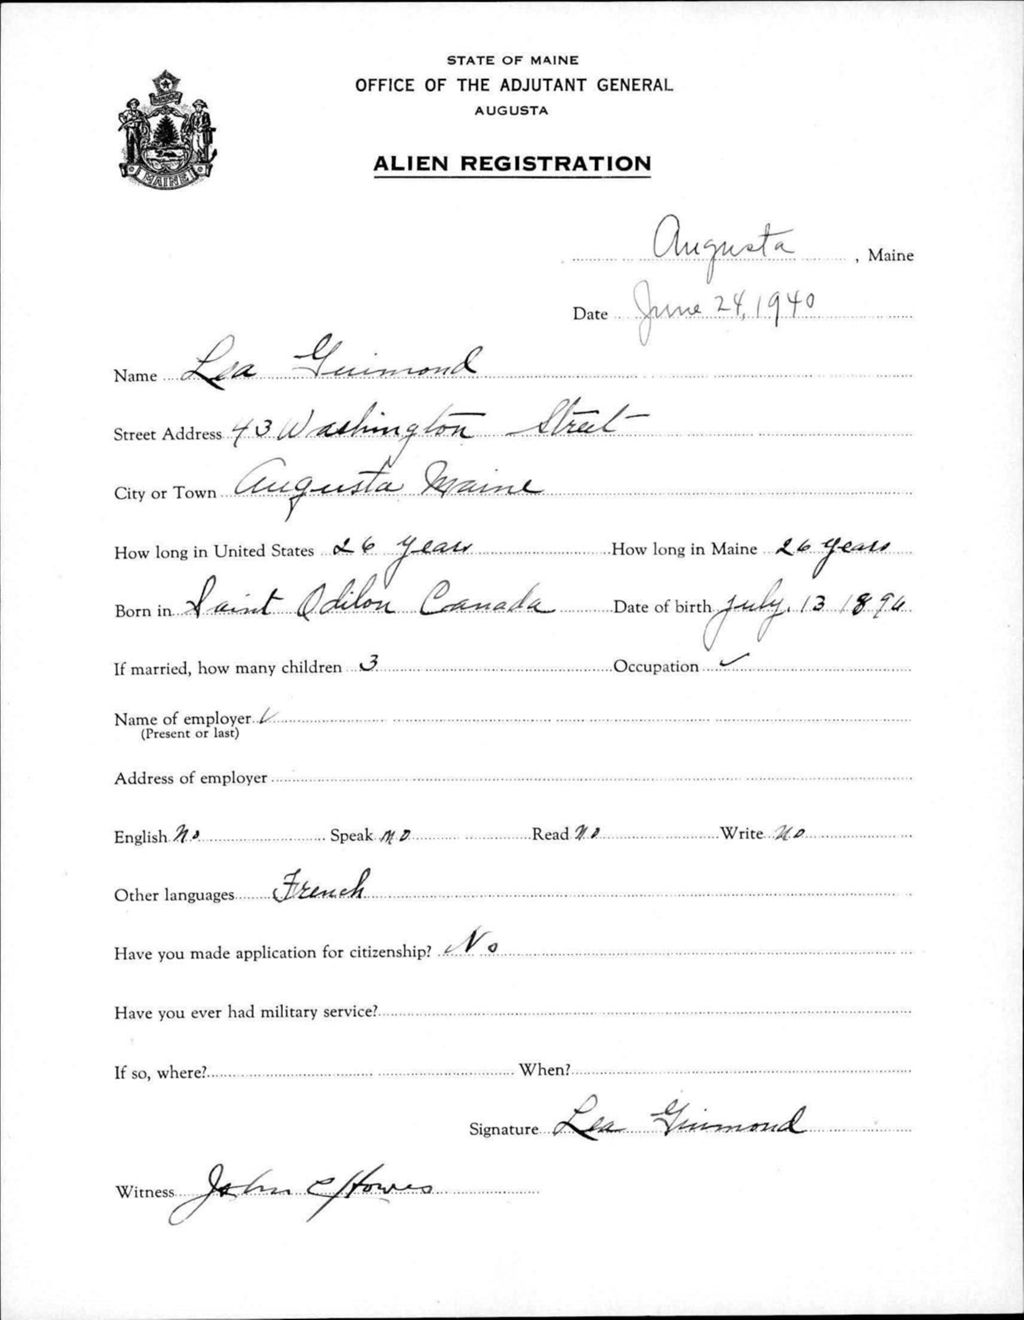 STATE OF MAINE
OFFICE OF THE ADJUTANT GENERAL
AUGUSTA
ALIEN REGISTRATION
MAINE
Augusta, Maine
Date June 24, 1940
Name Lea Guimond
Street Address 43 Washington Street
City or Town Augusta Maine
How long in United States 26 years How long in Maine 26 years
Born in Saint Odilon Canada Date of birth July. 13 1896
If married, how many children 3 Occupation ✓
Name of employer ✓
(Present or last)
Address of employer
English No Speak no Read No Write No
Other languages French
Have you made application for citizenship? No
Have you ever had military service?
If so, where? When?
Signature Lea Guimond
Witness John C Howes